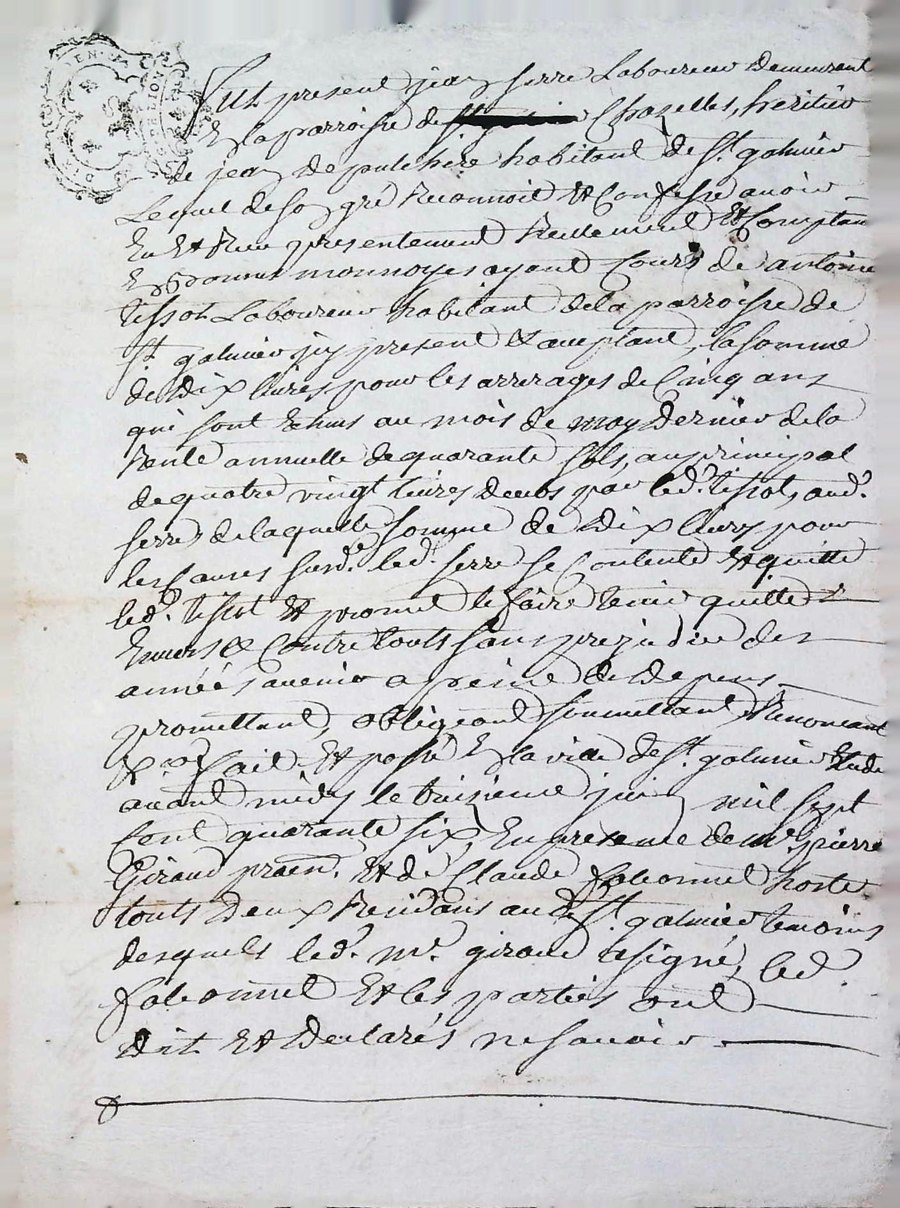 Fut present jean serre Laboureur demeurant
En la parroisse de Chazelles, heritier
de jean depulchere habitant de St. galmier
Lequel de son gré Reconnoit Et Confesse avoir
Eu Et Receu presentement Reellement Et Comptant
En bonnes monnoyes ayant Cours de antoine
tissot Laboureur habitant dela parroisse de
St. galmier jcy present Et acceptant, la somme
de Dix livres pour les arrerages de Cinq ans
qui sont Echus au mois de may Dernier de la
Rente annuelle de quarante sols, au principal
de quatre vingt livres deues par led. tissot, aud.
serre, de laquelle somme de Dix livres pour
les Causes susd. led. serre se Contente Et quitte
led. tissot Et promet le faire tenir quitte
Envers Et Contre touts sans prejudice des
années avenir a peine de Depens
promettant, obligeant soumettant, Renonceant
Fait Et passé En la ville de St. galmier Etude
avant midy le treizieme juin mil sept
Cent quarante six, En presence de Mr. pierre
Giraud praen. Et de Claude fabonnel hoste
touts Deux Residans aud. St. galmier temoins
desquels led. mr. giraud a signé, led.
fabonnel Et les parties ont
dit Et Declarés ne savoir